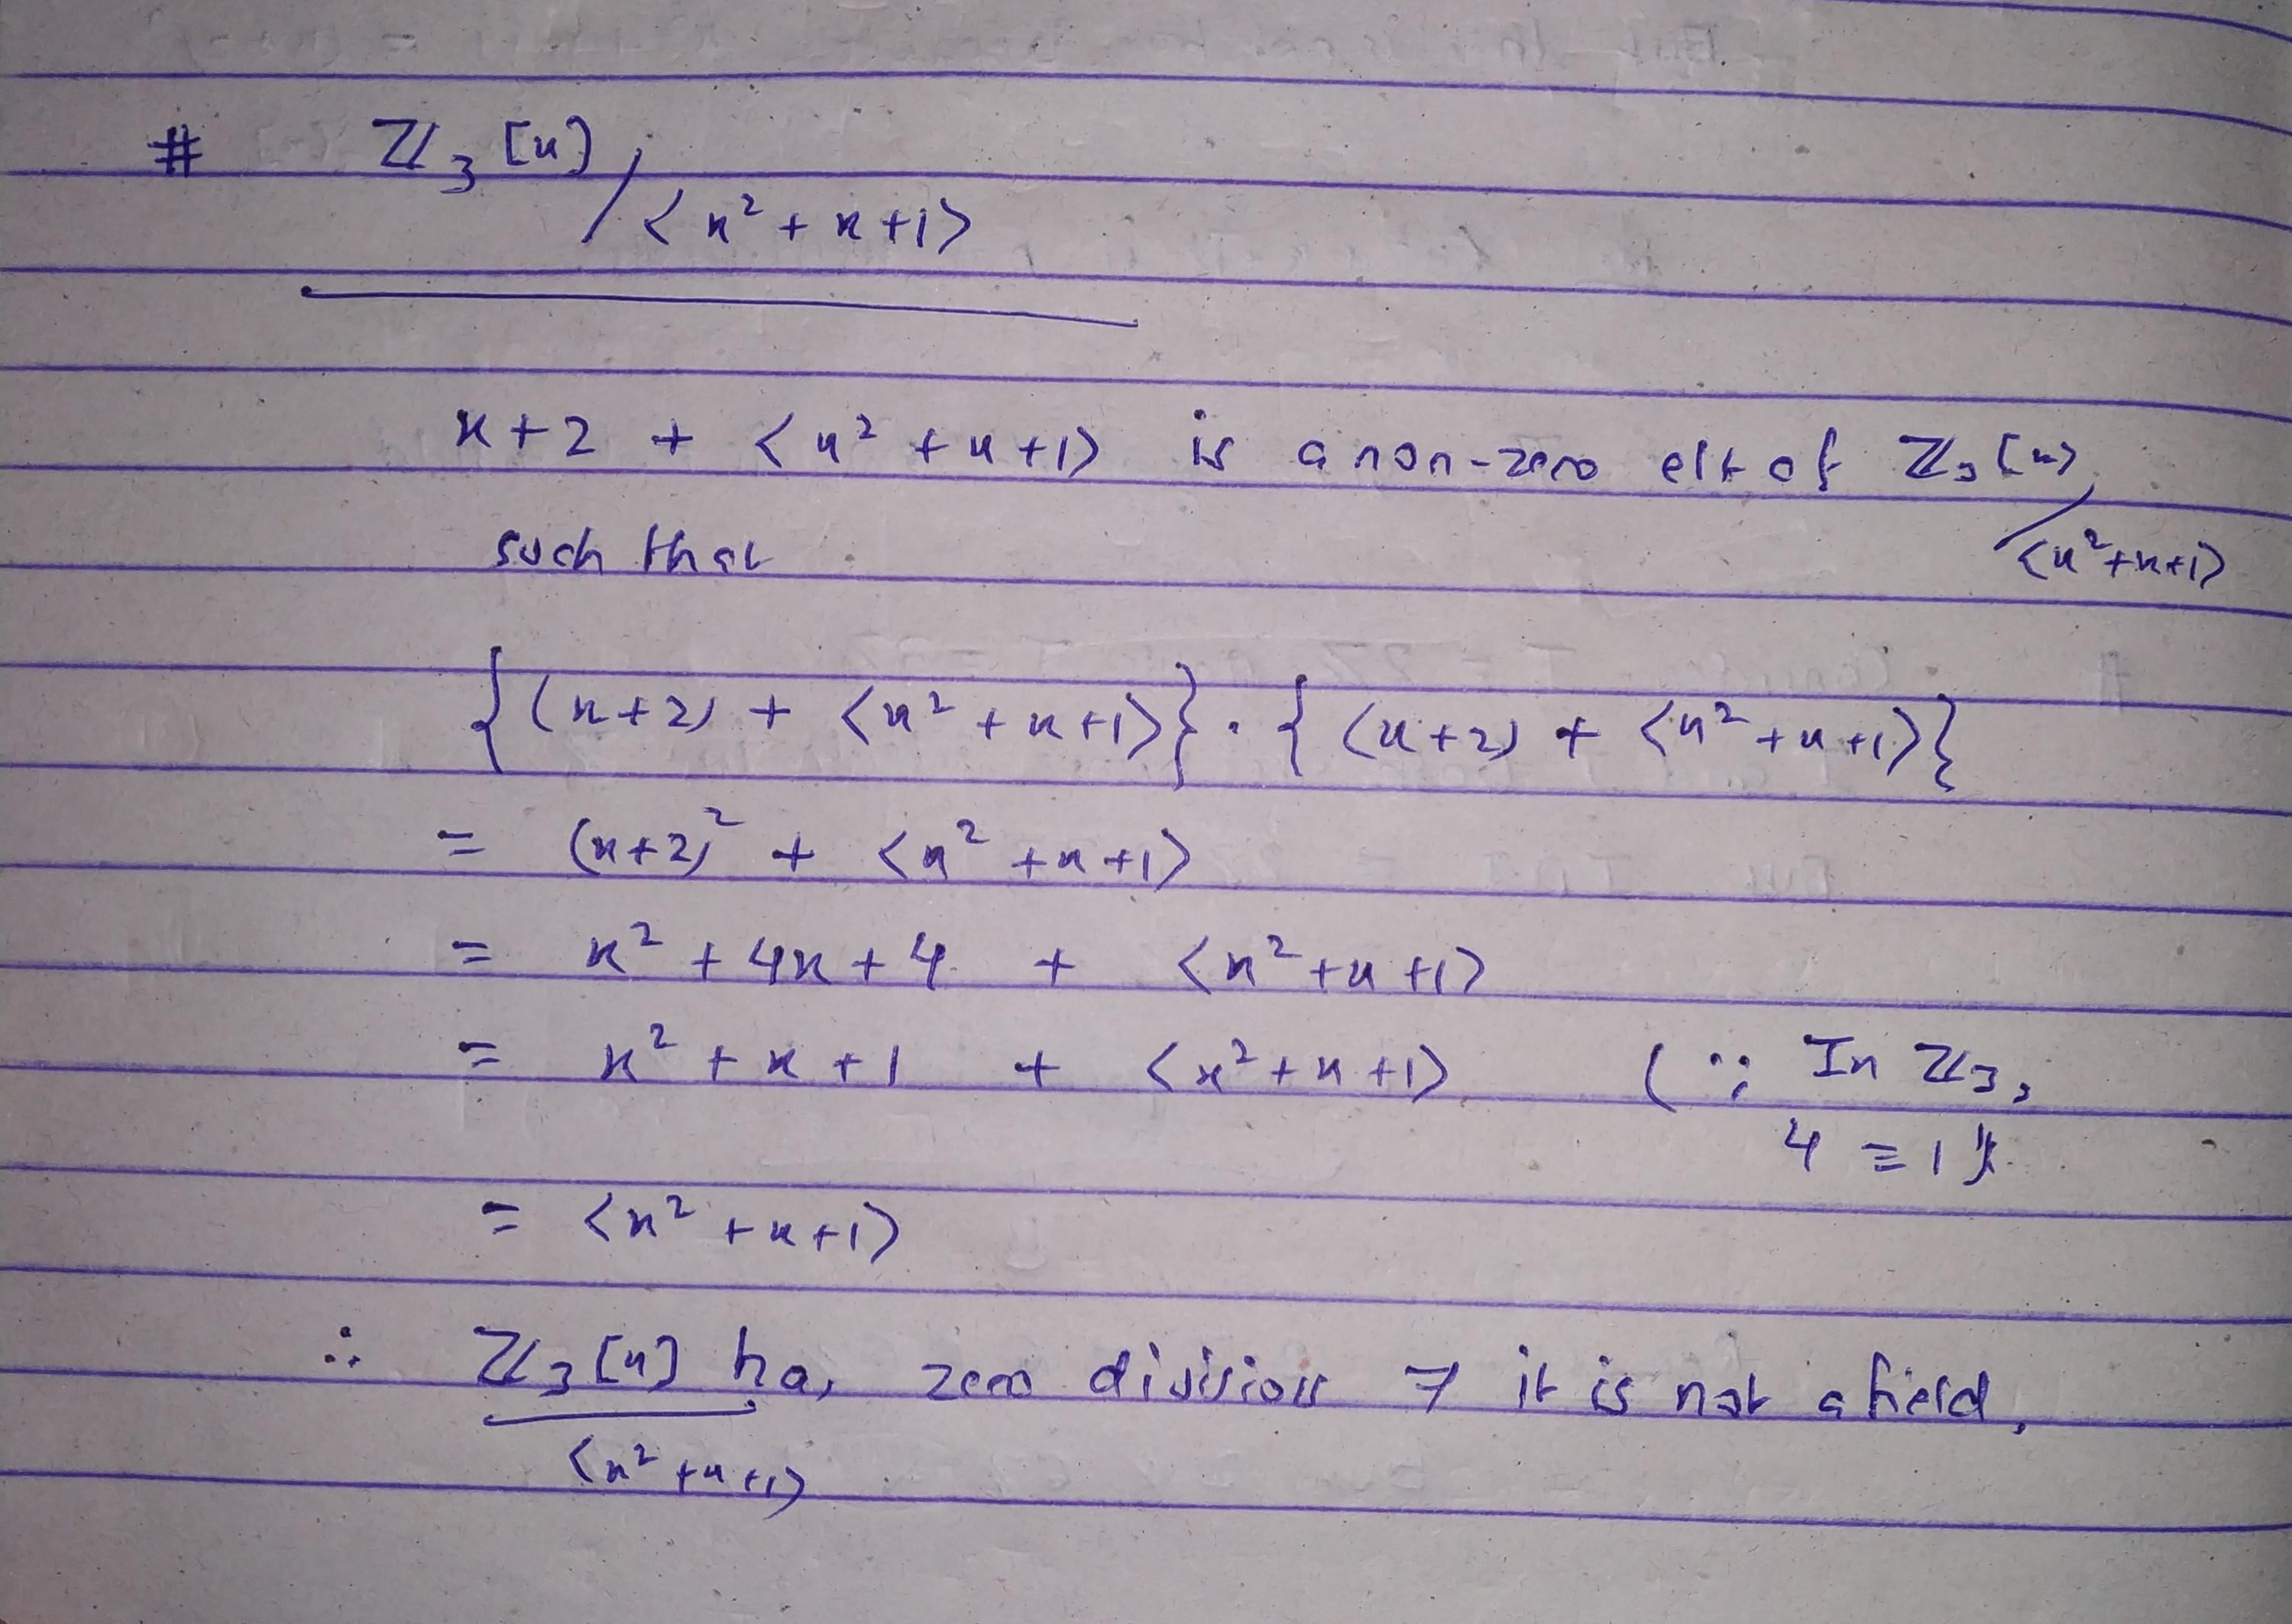 # Z₃[x] / <x² + x + 1>
x + 2 + <x² + x + 1> is a non-zero elt of Z₃[x] / <x² + x + 1>
such that
{(x+2) + <x² + x + 1>} · {(x+2) + <x² + x + 1>}
= (x+2)² + <x² + x + 1>
= x² + 4x + 4 + <x² + x + 1>
= x² + x + 1 + <x² + x + 1> (∵ In Z₃,
4 ≡ 1).
= <x² + x + 1>
∴ Z₃[x] has zero divisors ⇒ it is not a field.
<x² + x + 1>